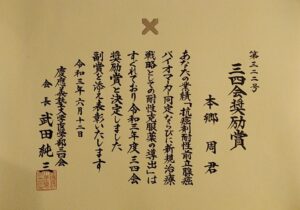 第三二二号
三四会奨励賞
本郷 周君
あなたの業績「抗癌剤耐性前立腺癌
バイオマーカー同定ならびに新規治療
戦略としての耐性克服薬の導出」は
すぐれており令和三年度三四会
奨励賞と決定しました
副賞を添え表彰いたします
令和三年六月十二日
慶應義塾大学医学部三四会
会長 武田純三